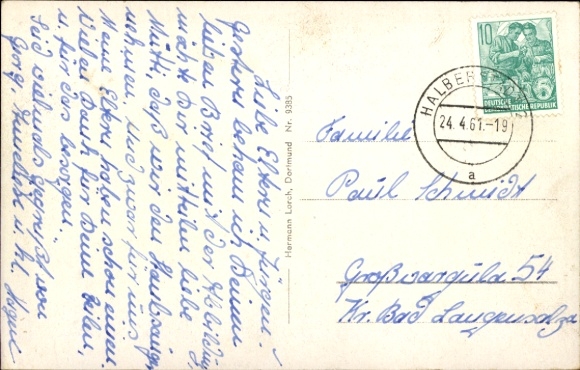 Liebe Eltern u. Jürgen!
Gestern bekam ich Deinen
lieben Brief mit der Abbildung
möcht Dir mitteilen liebe
Mutti, daß wir den
nehmen und zwar für uns
Meine Eltern haben schon einen.
Vielen Dank für Deine Zeilen,
u. für das besorgen.
Seid vielmals gegrüßt von
Georg, u. kl.
Hermann Lorch, Dortmund Nr. 9385
10
DEUTSCHE
DEMOKRATISCHE REPUBLIK
HALBERSTADT
24.4.61.-19
a
Familie
Paul Schmidt
Großvargula 54
Kr. Bad Langensalza